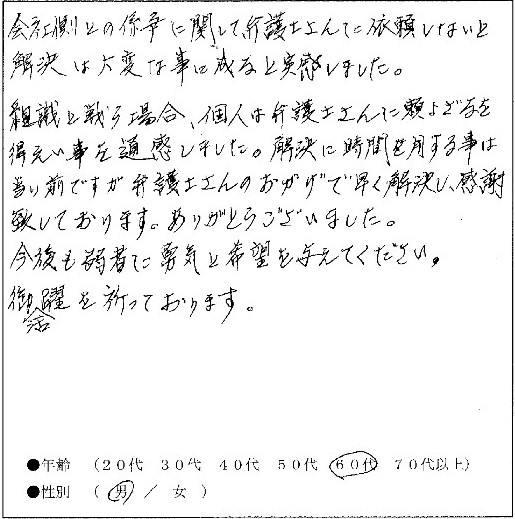 会社側との係争に関して弁護士さんに依頼しないと
解決は大変な事に成ると実感しました。
組識と戦う場合、個人は弁護士さんに頼よざるを
得えい事を通感しました。解決に時間を用する事は
当り前ですが弁護士さんのおかげで早く解決し、感謝
致しております。ありがとうございました。
今後も弱者に勇気と希望を与えてください。
御活躍を祈っております。
●年齢 （20代 30代 40代 50代 60代 70代以上）
●性別 （ 男 ／ 女 ）